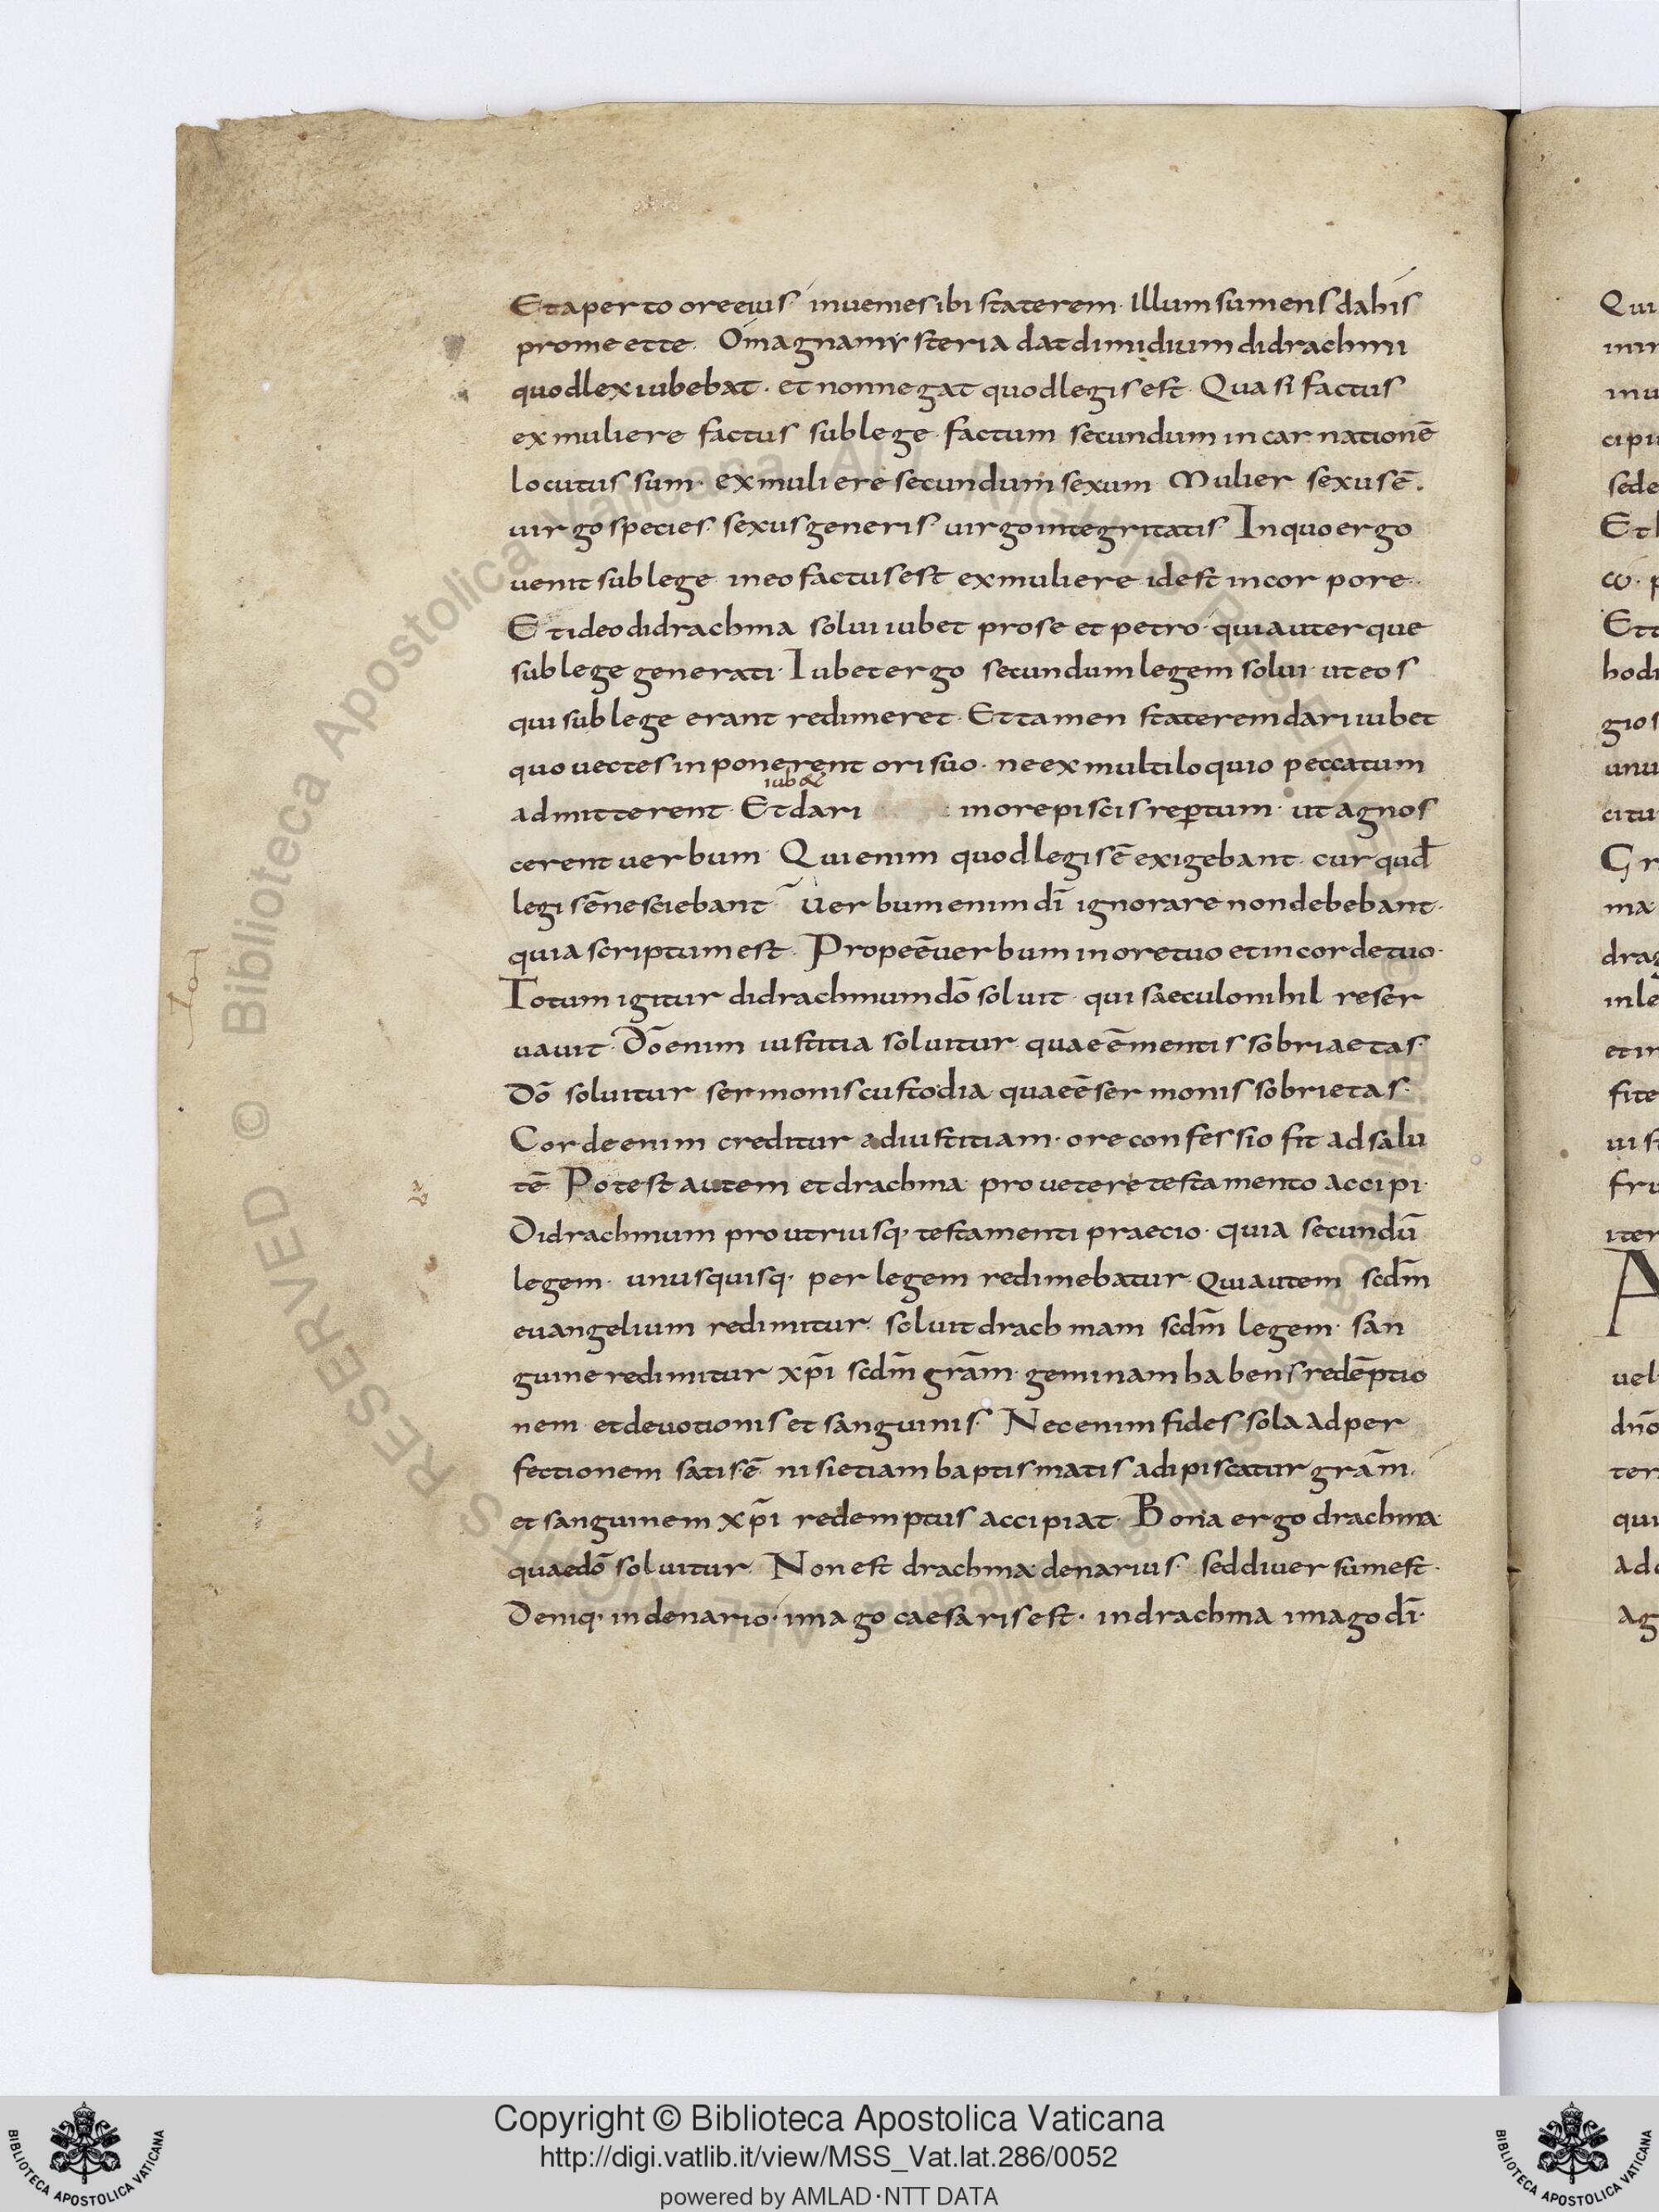 Et aperto ore eius inuenies ibi staterem. Illum sumens dabis
pro me et te. O magna mysteria dat dimidium didrachmi
quod lex iubebat. et non negat quod legis est. Quasi factus
ex muliere factus sub lege. factum secundum incarnationē
locutus sum. ex muliere secundum sexum Mulier sexus ē.
uirgo species. sexus generis uirgo integritatis. In quo ergo
uenit sub lege. in eo factus est ex muliere id est in corpore.
Et ideo didrachma solui iubet pro se et petro. quia uterque
sub lege generati. Iubet ergo secundum legem solui. ut eos
qui sub lege erant redimeret. Et tamen staterem dari iubet
quo uectes inponerent ori suo. ne ex multiloquio peccatum
iub&
admitterent. Et dari in ore piscis repertum. ut agnos
cerent uerbum. Qui enim quod legis ē exigebant. cur qud̄
legis ē nesciebant. Uerbum enim dī ignorare non debebant.
quia scriptum est. Prope ē uerbum in ore tuo et in corde tuo.
Totum igitur didrachmum dō soluit. qui saeculo nihil reser
uauit. Dō enim iustitia soluitur. quae ē mentis sobriaetas.
Dō soluitur sermonis custodia. quae ē sermonis sobrietas.
Corde enim creditur ad iustitiam. ore confessio fit ad salu
tē. Potest autem et drachma pro uetere testamento accipi.
Didrachmum pro utriusq. testamenti praecio. quia secundū
legem. unusquisq. per legem redimebatur. Qui autem scdm̄
euangelium redimitur. soluit drachmam scdm̄ legem. san
guine redimitur xp̄i scdm̄ grām. geminam habens redēptio
nem. et deuotionis et sanguinis. Nec enim fides sola ad per
fectionem satis ē. nisi etiam baptismatis adipiscatur grām.
et sanguinem xp̄i redemptus accipiat. Bona ergo drachma
quae dō soluitur. Non est drachma denarius. sed diuersum est.
Deniq. in denario. imago caesaris est. in drachma imago dī.
Biblioteca Apostolica Vaticana
ALL RIGHTS RESERVED ©
Copyright © Biblioteca Apostolica Vaticana
http://digi.vatlib.it/view/MSS_Vat.lat.286/0052
powered by AMLAD·NTT DATA
BIBLIOTECA APOSTOLICA VATICANA
BIBLIOTECA APOSTOLICA VATICANA